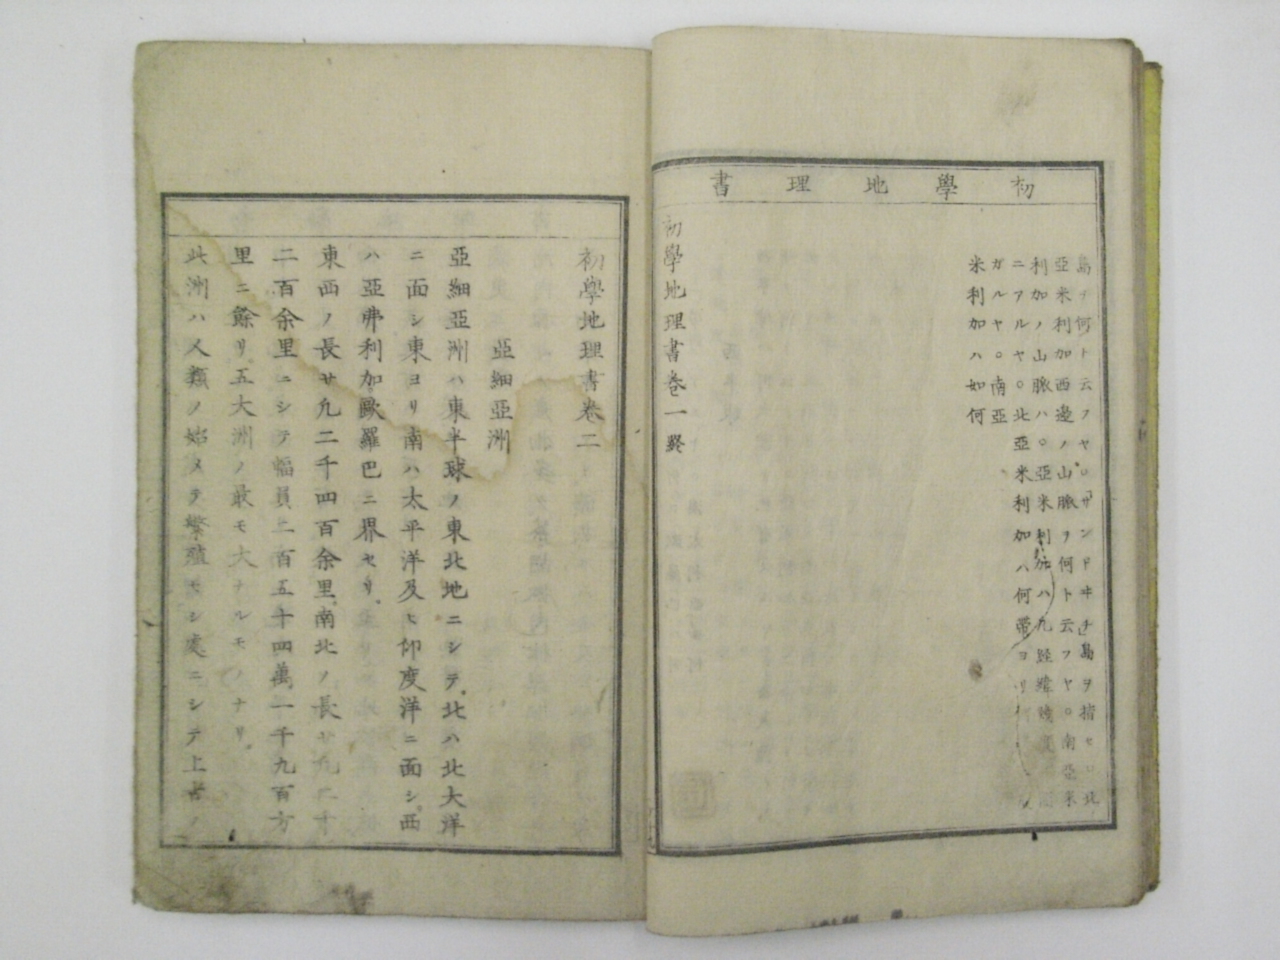 初學地理書
島ヲ何ト云フヤ○「サンドヰチ」島ヲ指セヨ北
亞米利加西邊ノ山脈ヲ何ト云フヤ○南亞米
利加ノ山脈ハ○亞米利加ハ九
ニアルヤ○北亞米利加ハ何帶ヨリ
ガルヤ○南亞
米利加ハ如何
初學地理書卷一終
初學地理書卷二
亞細亞洲
亞細亞洲ハ東半球ノ東北地ニシテ北ハ北大洋
ニ面シ東ヨリ南ハ太平洋及ヒ印度洋ニ面シ西
ハ亞弗利加歐羅巴ニ界セリ
東西ノ長サ凢二千四百余里南北ノ長サ凢二千
二百余里ニシテ幅員二百五十四萬一千九百方
里ニ餘リ五大洲ノ最モ大ナルモノナリ
此洲ハ人類ノ始メテ繁殖セシ處ニシテ上古ノ